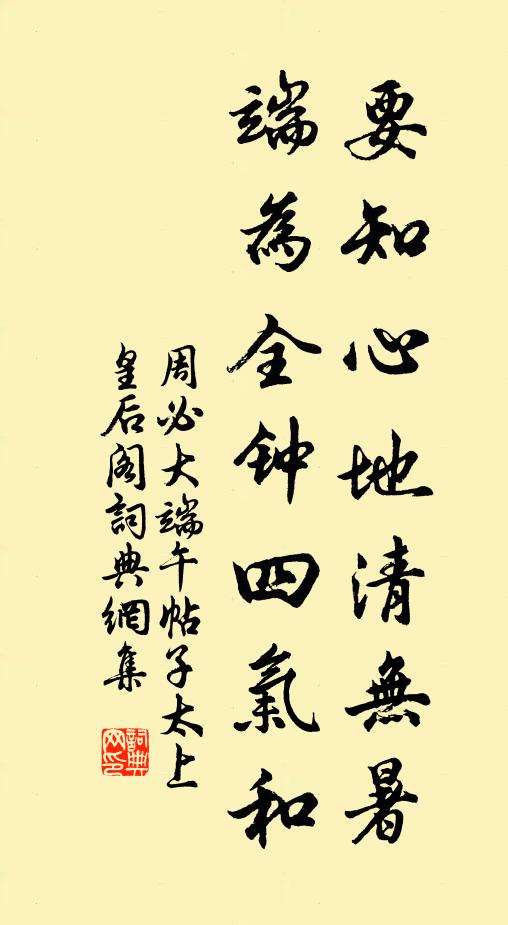 要知心地清無暑
端為全钟四氣和
周必大端午帖子太上
皇后阁詞典網集
詞典网印